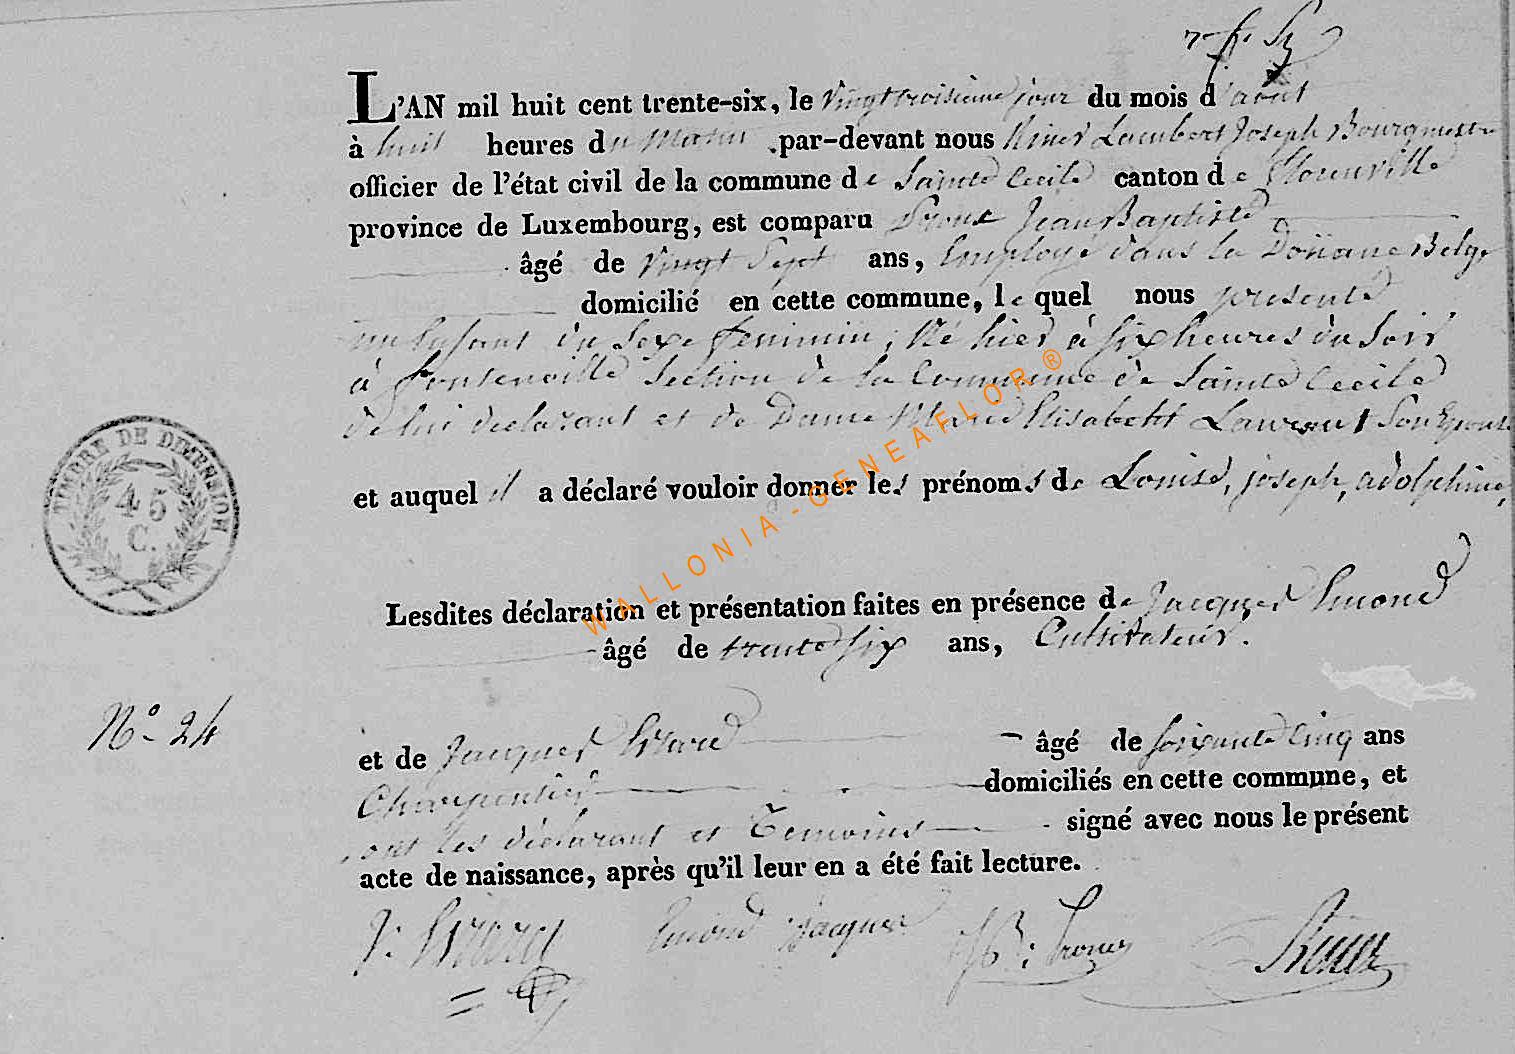 L'AN mil huit cent trente-six, le Vingt troisieme jour du mois d'août
à huit heures du Matin par-devant nous Lambert Joseph Bourgmestre
officier de l'état civil de la commune de Sainte Cecile canton de Florenville
province de Luxembourg, est comparu Jean Baptiste
âgé de Vingt Sept ans, Employé dans la Douane Belge
domicilié en cette commune, le quel nous presente
un Enfant du Sexe feminin, Né hier à six heures du Soir
à Fontenoille Section de la Commune de Sainte Cecile
de lui declarant et de Dame Marie Elisabeth Laurent Son Epouse
et auquel il a déclaré vouloir donner les prénoms de Louise, joseph, adolphine,
TIMBRE DE DIMENSION
45
C.
Lesdites déclaration et présentation faites en présence de Jacques Emond
âgé de trente six ans, Cultivateur.
No. 24
et de Jacques âgé de soixante Cinq ans
Charpentier domiciliés en cette commune, et
ont les déclarant et Temoins signé avec nous le présent
acte de naissance, après qu'il leur en a été fait lecture.
J: Emond Jacques JB:
WALLONIA-GENEAFLOR®